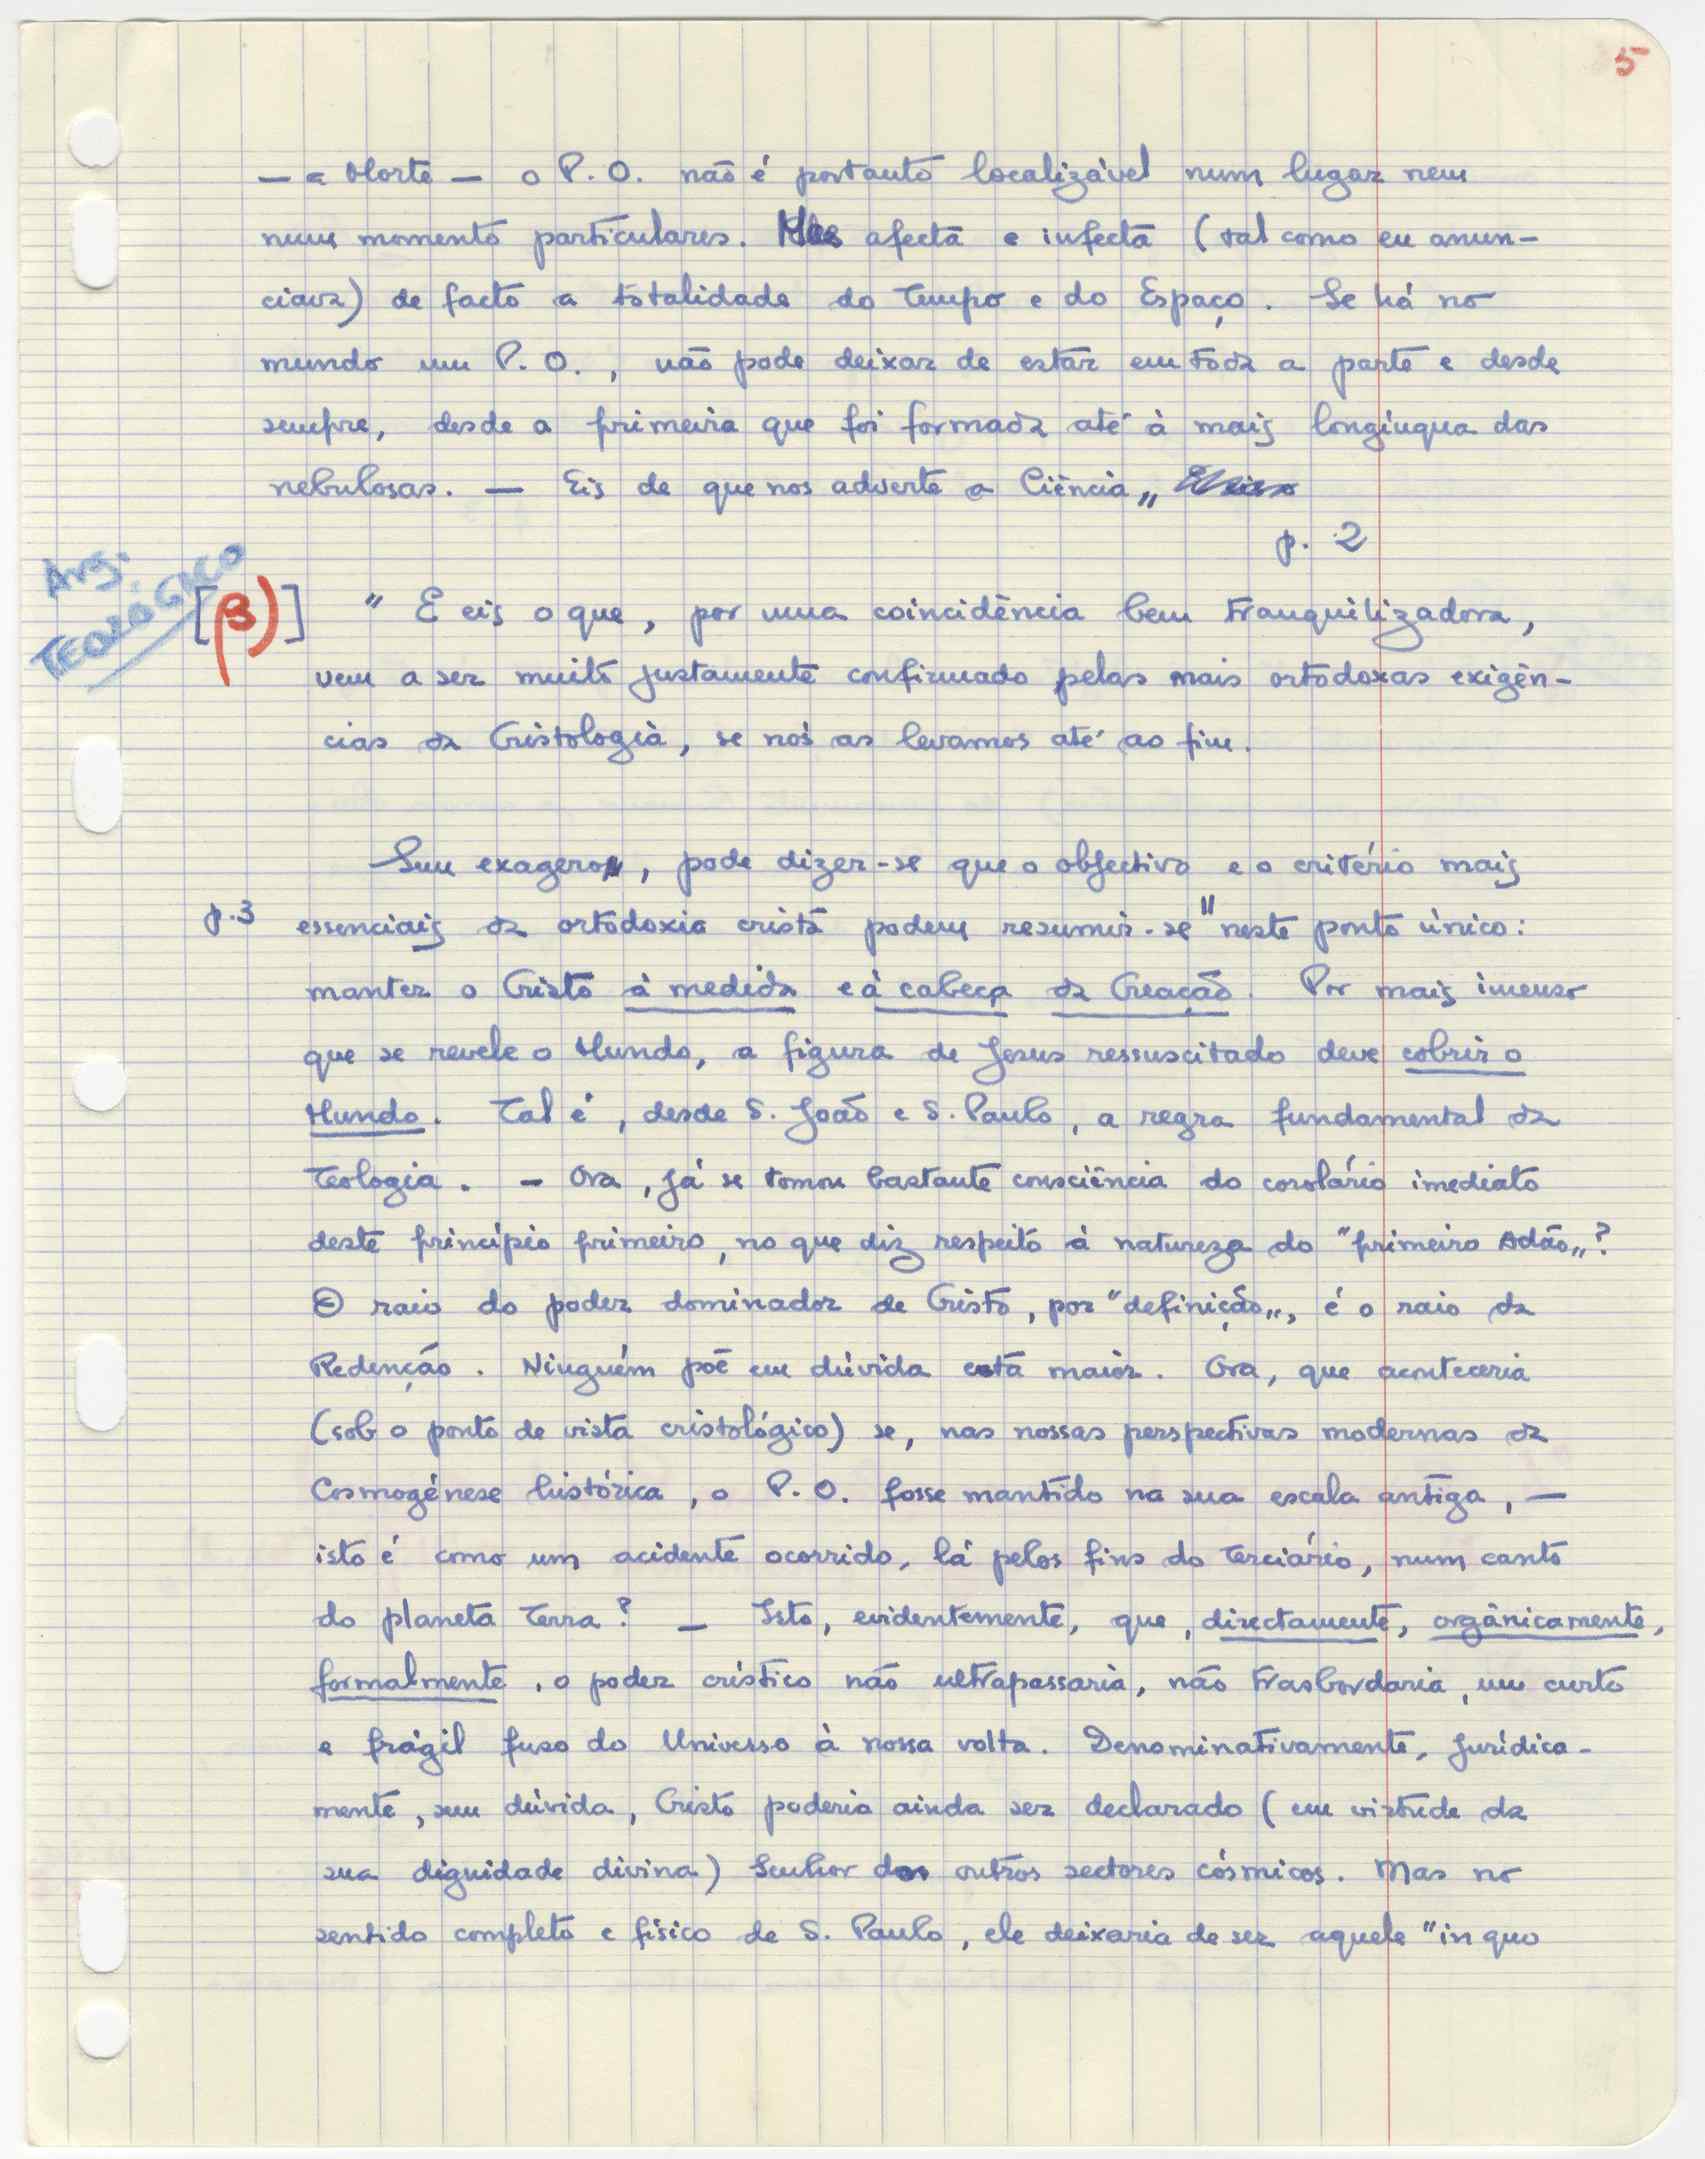 5
— a Morte — o P. O. não é portanto localizável num lugar nem
num momento particulares. Mas afecta e infecta (tal como eu anun-
ciava) de facto a totalidade do Tempo e do Espaço. Se há no
mundo um P. O., não pode deixar de estar em toda a parte e desde
sempre, desde a primeira que foi formada até à mais longínqua das
nebulosas. — Eis de que nos adverte a Ciência„
p. 2
Arg.
TEOLÓGICO
[β)] " E eis o que, por uma coincidência bem tranquilizadora,
vem a ser muito justamente confirmado pelas mais ortodoxas exigên-
cias da Cristologia, se nós as levamos até ao fim.
Sem exagero, pode dizer-se que o objectivo e o critério mais
p.3 essenciais da ortodoxia cristã podem resumir-se " neste ponto único:
manter o Cristo à medida e à cabeça da Creação. Por mais imenso
que se revele o Mundo, a figura de Jesus ressuscitado deve cobrir o
Mundo. Tal é, desde S. João e S. Paulo, a regra fundamental da
Teologia. — Ora, já se tomou bastante consciência do corolário imediato
deste princípio primeiro, no que diz respeito à natureza do "primeiro Adão„?
O raio do poder dominador de Cristo, por "definição„, é o raio da
Redenção. Ninguém põe em dúvida esta maior. Ora, que aconteceria
(sob o ponto de vista cristológico) se, nas nossas perspectivas modernas da
Cosmogénese histórica, o P. O. fosse mantido na sua escala antiga, —
isto é como um acidente ocorrido, lá pelos fins do Terciário, num canto
do planeta Terra? — Isto, evidentemente, que, directamente, orgânicamente,
formalmente, o poder crístico não ultrapassaria, não trasbordaria, um curto
e frágil fuso do Universo à nossa volta. Denominativamente, jurídica-
mente, sem dúvida, Cristo poderia ainda ser declarado (em virtude da
sua dignidade divina) Senhor dos outros sectores cósmicos. Mas no
sentido completo e físico de S. Paulo, ele deixaria de ser aquele "in quo